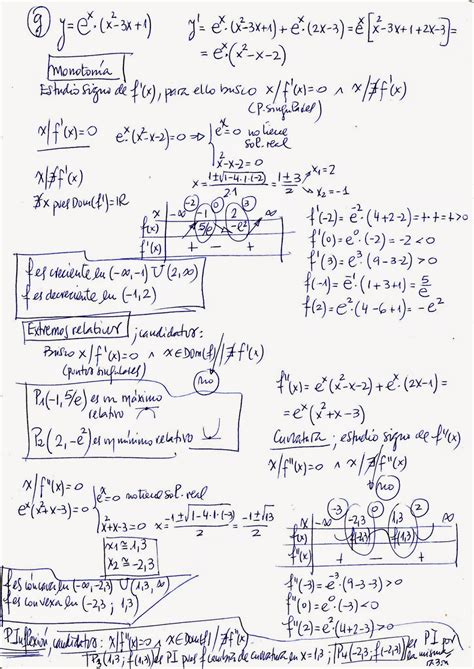 g) y = e^x·(x²-3x+1)   y' = e^x·(x²-3x+1) + e^x·(2x-3) = e^x[x²-3x+1+2x-3] =
= e^x·(x²-x-2)
Monotonía
Estudio signo de f'(x), para ello busco x/f'(x)=0 ∧ x/∄f'(x)
(P. singulares)
x/f'(x)=0   e^x·(x²-x-2)=0 ⇒ { e^x=0 no tiene sol. real
x²-x-2=0
x = (1±√(1-4·1·(-2)))/(2·1) = (1±3)/2   x₁=2
x₂=-1
x/∄f'(x)
∄x pues Dom(f')=ℝ
-2 0 3
x   -∞   -1   2   ∞
f(x)   5/e   -e²
f'(x)   +   -   +
f'(-2) = e^-2·(4+2-2) = +·+ = + > 0
f'(0) = e^0·(-2) = -2 < 0
f'(3) = e^3·(9-3-2) > 0
f(-1) = e^-1·(1+3+1) = 5/e
f(2) = e²·(4-6+1) = -e²
f es creciente en (-∞,-1) ∪ (2,∞)
f es decreciente en (-1,2)
Extremos relativos; candidatos:
Busco x/f'(x)=0 ∧ x∈Dom(f)/∄f'(x)
(puntos singulares)   no
P₁(-1,5/e) es un máximo relativo
P₂(2,-e²) es un mínimo relativo
f''(x) = e^x(x²-x-2) + e^x·(2x-1) =
= e^x(x²+x-3)
Curvatura; estudio signo de f''(x)
x/f''(x)=0 ∧ x/∄f''(x)
no
x/f''(x)=0
e^x(x²+x-3)=0 { e^x=0 no tiene sol. real
x²+x-3=0   x = (-1±√(1-4·1·(-3)))/2 = (-1±√13)/2
x₁ ≅ 1,3
x₂ ≅ -2,3
-3 0 2
x   -∞   -2,3   1,3   ∞
f(x)   f(-2,3)   f(1,3)
f''(x)   +   -   +
f es cóncava en (-∞,-2,3) ∪ (1,3,∞)
f es convexa en (-2,3; 1,3)
f''(-3) = e^-3·(9-3-3) > 0
f''(0) = e^0·(-3) < 0
f''(2) = e²(4+2-3) > 0
P. Inflexión, candidatos: x/f''(x)=0 ∧ x∈Dom(f)/∄f''(x)
P₃(1,3; f(1,3)) es PI pues f cambia de curvatura en x=1,3; P₄(-2,3; f(-2,3)) es PI por